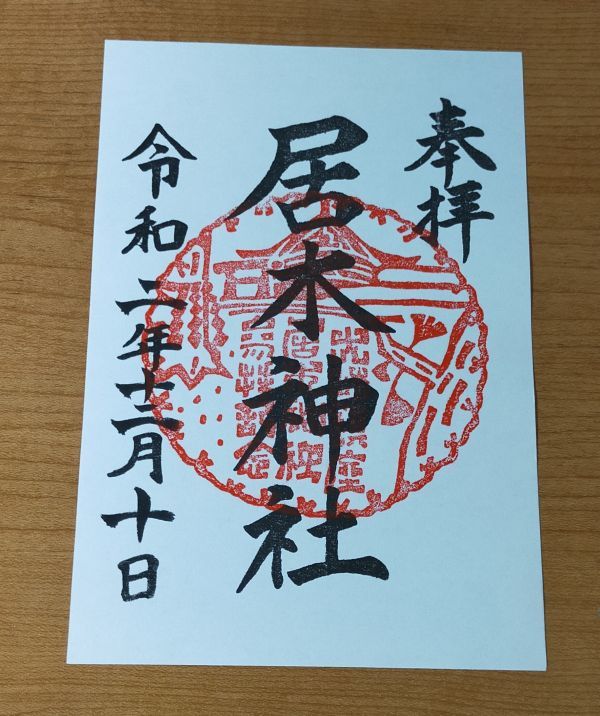 奉拝
居木神社
令和二年十二月十日